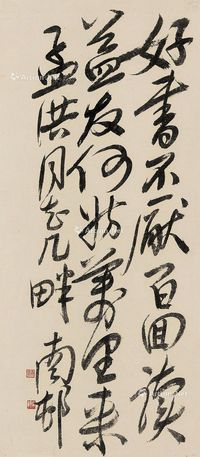 好書不厭百回讀
益友何妨萬里来
孟洪同志几畔 南邨